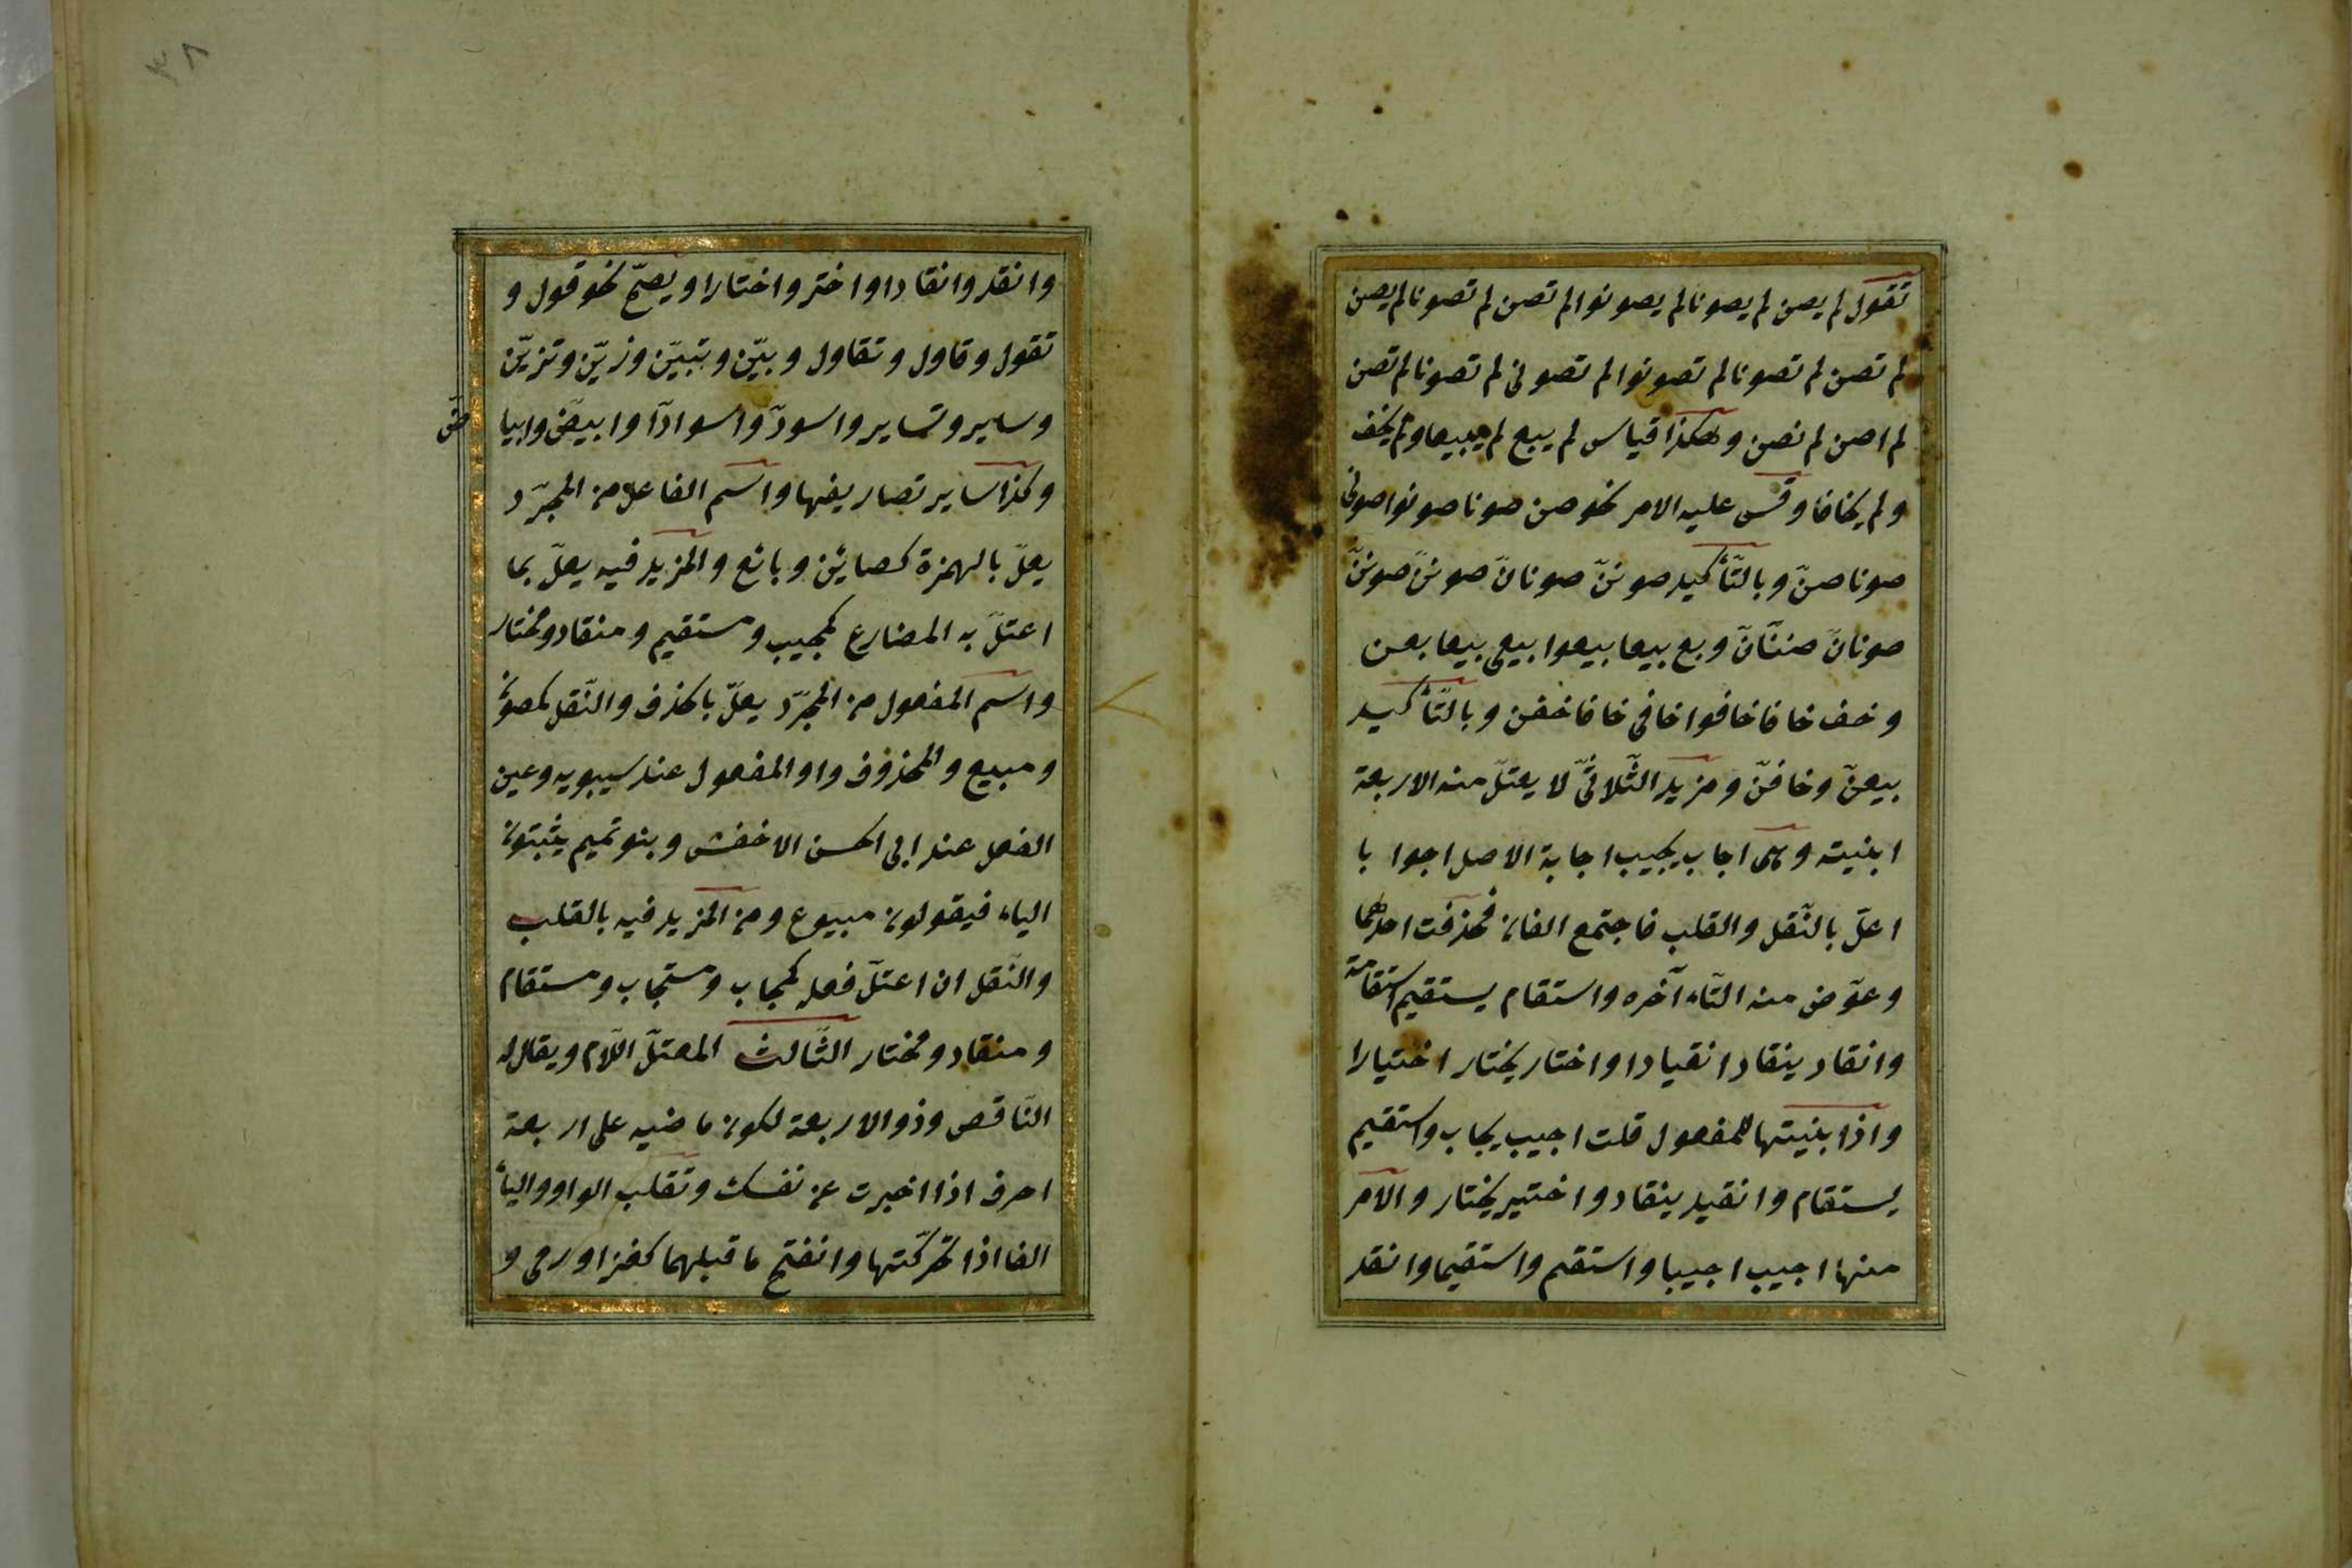 تقول لم يصن لم يصونا لم يصونوا لم تصن لم تصونا لم يصن
لم تصن لم تصونا لم تصونوا لم تصونى لم تصونا لم تصن
لم اصن لم نصن وهكذا قياس لم يبع لم يبيعا ولم يخف
ولم يخافا وقس عليه الامر نحو صن صونا صونوا صونى
صونا صنّ وبالتّأكيد صوننّ صونانّ صوننّ صوننّ
صونانّ صنّنانّ وبع بيعا بيعوا بيعى بيعا بعن
وخف خافا خافوا خافى خافا خفن وبالتّأكيد
بيعنّ وخافنّ ومزيد الثّلاثىّ لا يعتلّ منه الاربعة
ابنية وهى اجاب يجيب اجابة الاصل اجوابا
اعلّ بالنّقل والقلب فاجتمع الفان فحذفت احدهما
وعوّض منه التّاء آخره واستقام يستقيم استقامة
وانقاد ينقاد انقيادا واختار يختار اختيارا
واذا بنيتها للمفعول قلت اجيب يجاب واستقيم
يستقام وانقيد ينقاد واختير يختار والامر
منها اجيب اجيبا واستقم واستقيما وانقد
٣٨
وانقد وانقادا واختر واختارا ويصحّ نحو قول و
تقول وقاول وتقاول وبيّن وتبيّن وزيّن وتزيّن
وساير وتساير واسودّ واسوادّا وابيضّ وابياضّ
وكذا ساير تصاريفها واسم الفاعل من المجرّد
يعلّ بالهمزة كصاين وبائع والمزيد فيه يعلّ بما
اعتلّ به المضارع كمجيب ومستقيم ومنقاد ومختار
واسم المفعول من المجرّد يعلّ بالحذف والنّقل كمصون
ومبيع والمحذوف واو المفعول عند سيبويه وعين
الفعل عند ابى الحسن الاخفش وبنو تميم يثبتون
الياء فيقولون مبيوع ومن المزيد فيه بالقلب
والنّقل ان اعتلّ فعله كمجاب ومستجاب ومستقام
ومنقاد ومختار الثّالث المعتلّ اللّام ويقال له
النّاقص وذو الاربعة لكون ماضيه على اربعة
احرف اذا اخبرت عن نفسك وتقلب الواو والياء
الفا اذا تحركّتها وانفتح ما قبلهما كغزا ورمى و